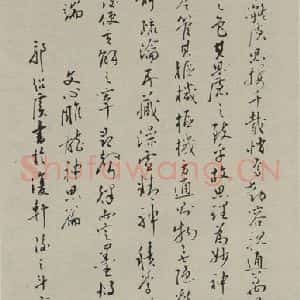 凝慮思接千載悄焉動容視通萬
之色其思慮之致乎故思理為妙神
令管其樞機樞機方通則物無隱
疏瀹五藏澡雪精神積學
後使玄解之宰尋聲律而定墨
端 文心雕龍神思篇
郭紹虞書於
Shufawang.CN